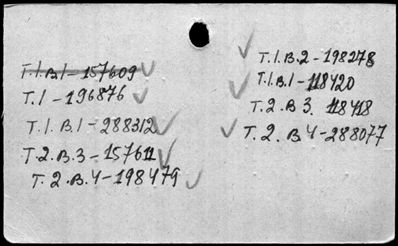 T.1.B.1-157609
T.1-196876
T.1.B.1-288312
T.2.B.3-157611
T.2.B.4-198479
T.1.B.2-198278
T.1.B.1-118420
T.2.B 3. 118418
T.2.B 4-288077